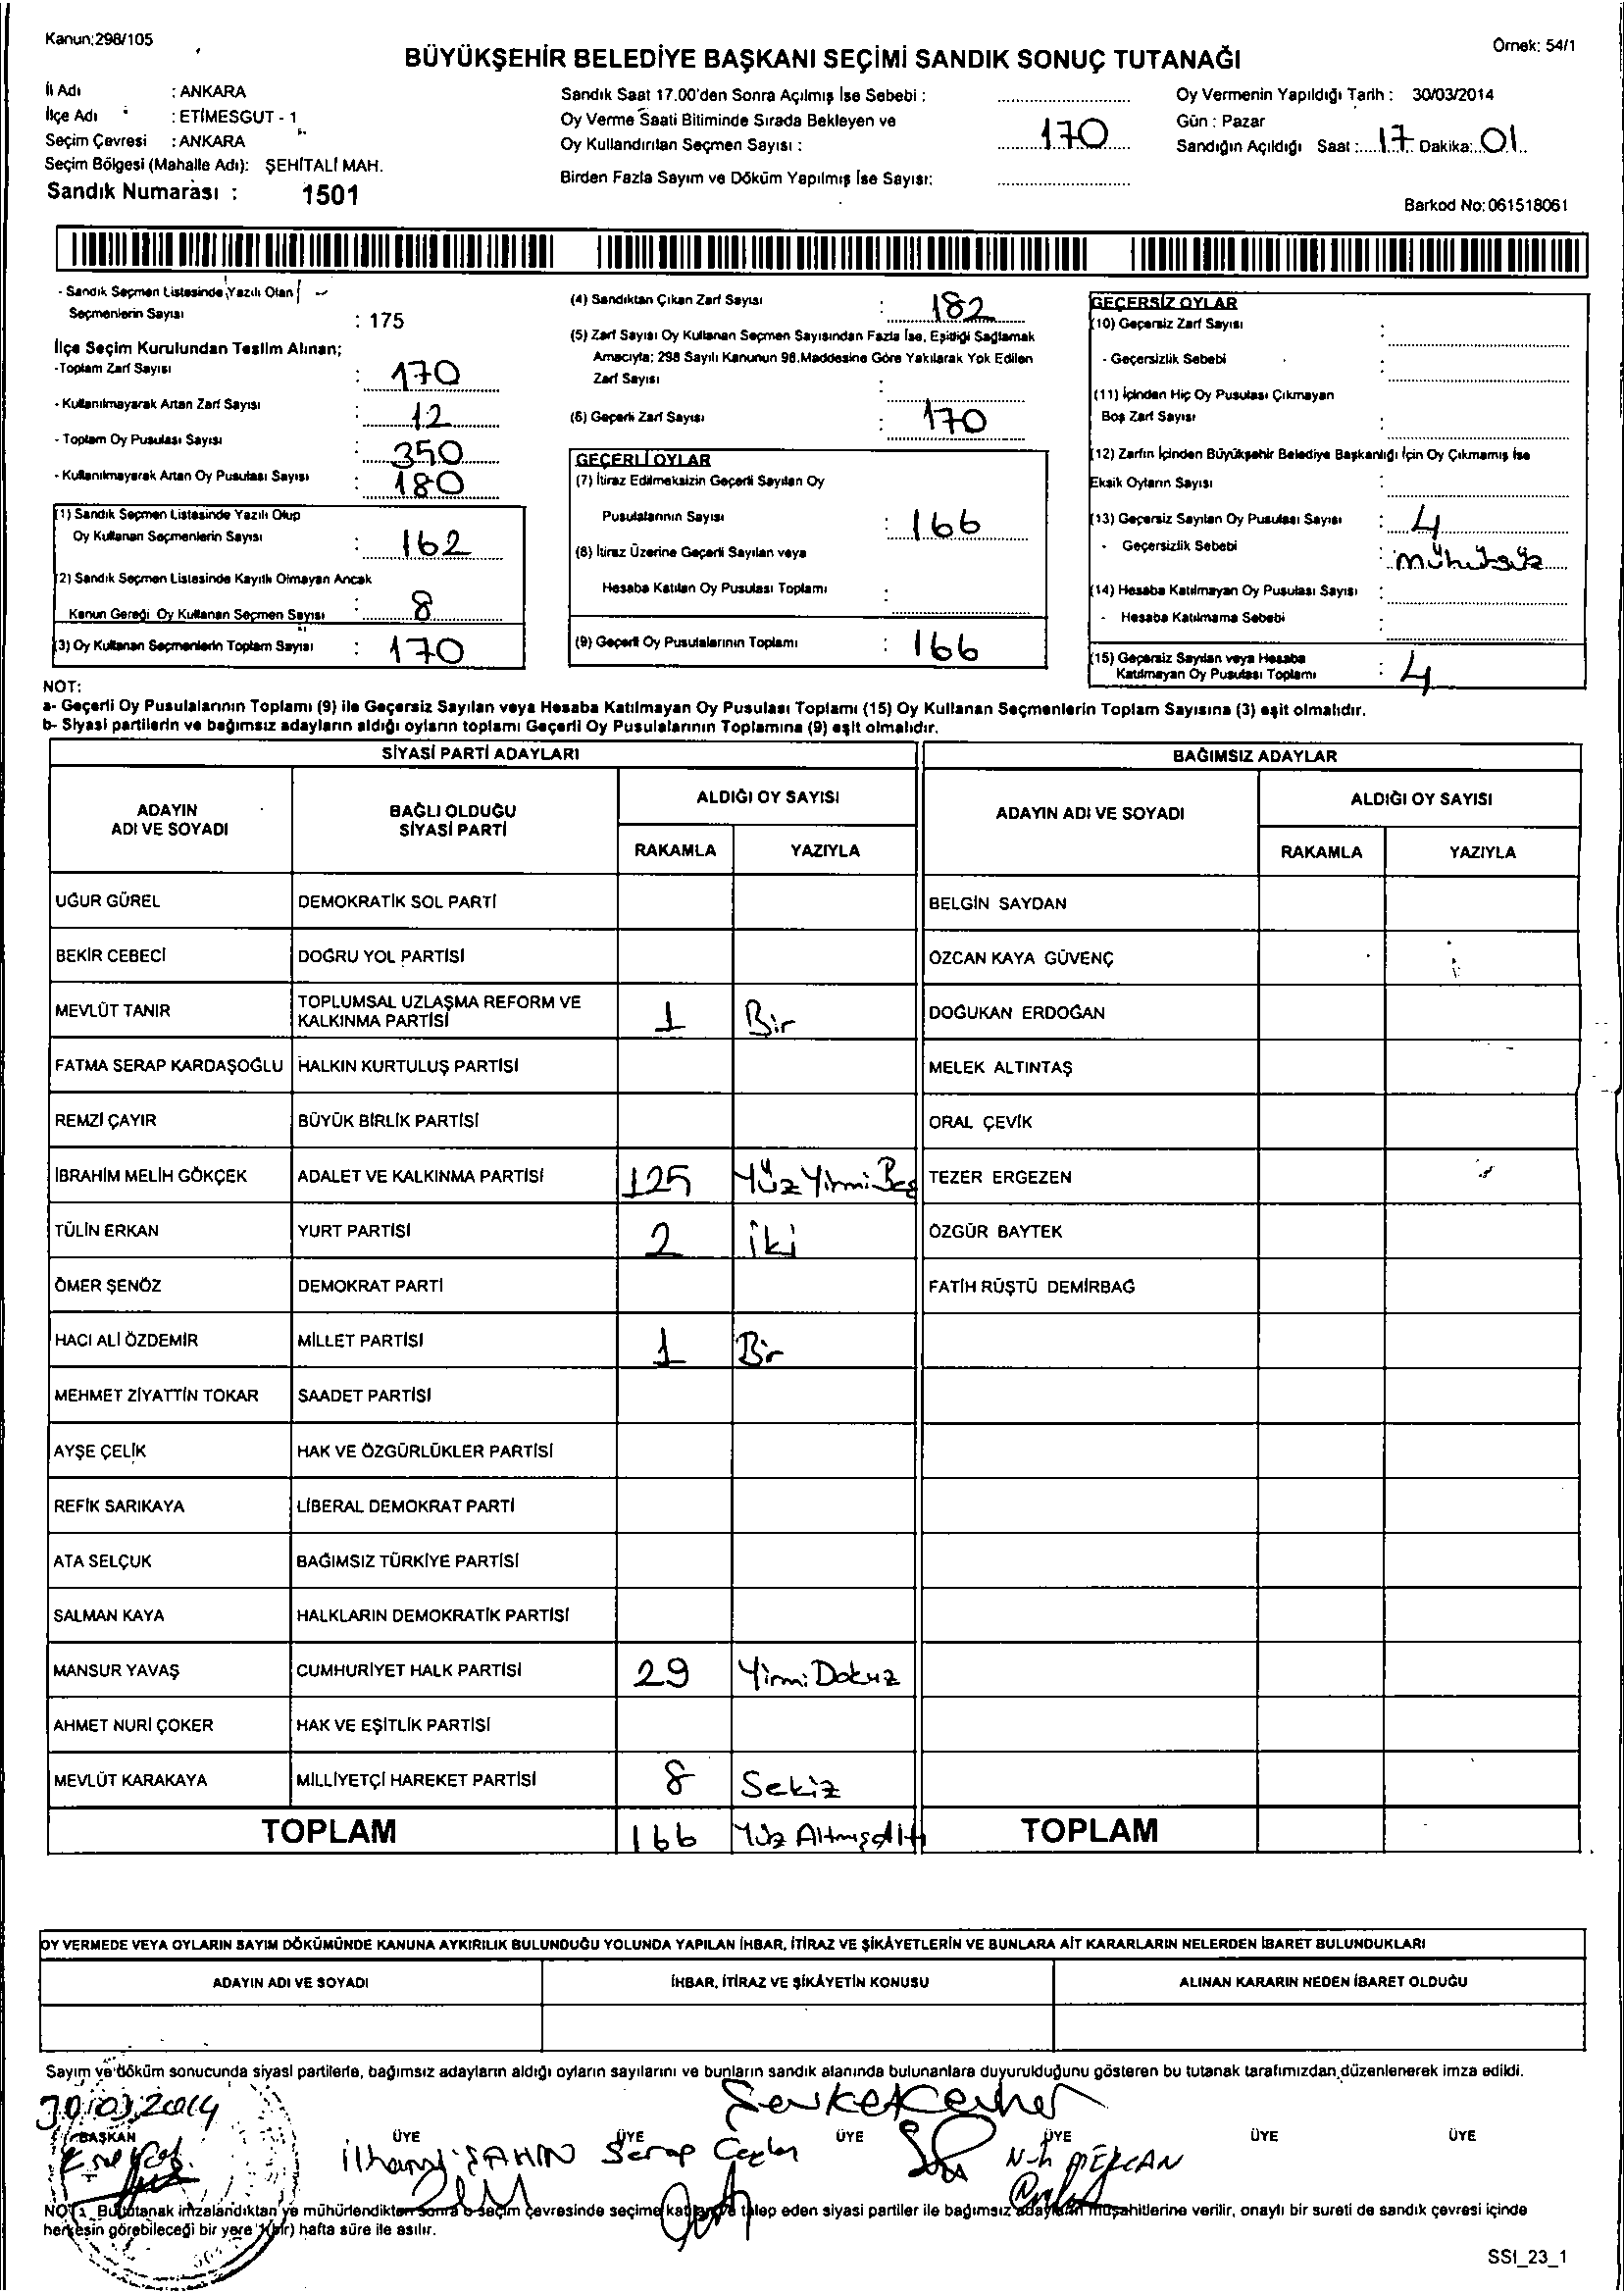 Kanun;298/105
Örnek: 54/1
BÜYÜKŞEHİR BELEDİYE BAŞKANI SEÇİMİ SANDIK SONUÇ TUTANAĞI
İl Adı : ANKARA
İlçe Adı : ETİMESGUT - 1
Seçim Çevresi : ANKARA
Seçim Bölgesi (Mahalle Adı): ŞEHİTALİ MAH.
Sandık Numarası : 1501
Sandık Saat 17.00'den Sonra Açılmış İse Sebebi :
Oy Verme Saati Bitiminde Sırada Bekleyen ve
Oy Kullandırılan Seçmen Sayısı : 170
Birden Fazla Sayım ve Döküm Yapılmış İse Sayısı:
Oy Vermenin Yapıldığı Tarih : 30/03/2014
Gün : Pazar
Sandığın Açıldığı Saat :.....17.. Dakika:..01..
Barkod No: 061518061
- Sandık Seçmen Listesinde Yazılı Olan
Seçmenlerin Sayısı : 175
İlçe Seçim Kurulundan Teslim Alınan;
-Toplam Zarf Sayısı : 170
- Kullanılmayarak Artan Zarf Sayısı : 12
- Toplam Oy Pusulası Sayısı : 350
- Kullanılmayarak Artan Oy Pusulası Sayısı : 180
(1) Sandık Seçmen Listesinde Yazılı Olup
Oy Kullanan Seçmenlerin Sayısı : 162
(2) Sandık Seçmen Listesinde Kayıtlı Olmayan Ancak
Kanun Gereği Oy Kullanan Seçmen Sayısı : 8
(3) Oy Kullanan Seçmenlerin Toplam Sayısı : 170
(4) Sandıktan Çıkan Zarf Sayısı : 182
(5) Zarf Sayısı Oy Kullanan Seçmen Sayısından Fazla İse, Eşitliği Sağlamak
Amacıyla; 298 Sayılı Kanunun 98.Maddesine Göre Yakılarak Yok Edilen
Zarf Sayısı :
(6) Geçerli Zarf Sayısı : 170
GEÇERLİ OYLAR
(7) İtiraz Edilmeksizin Geçerli Sayılan Oy
Pusulalarının Sayısı : 166
(8) İtiraz Üzerine Geçerli Sayılan veya
Hesaba Katılan Oy Pusulası Toplamı :
(9) Geçerli Oy Pusulalarının Toplamı : 166
GEÇERSİZ OYLAR
(10) Geçersiz Zarf Sayısı :
- Geçersizlik Sebebi :
(11) İçinden Hiç Oy Pusulası Çıkmayan
Boş Zarf Sayısı :
(12) Zarfın İçinden Büyükşehir Belediye Başkanlığı İçin Oy Çıkmamış İse
Eksik Oyların Sayısı :
(13) Geçersiz Sayılan Oy Pusulası Sayısı : 4
- Geçersizlik Sebebi : mühürsüz
(14) Hesaba Katılmayan Oy Pusulası Sayısı :
- Hesaba Katılmama Sebebi :
(15) Geçersiz Sayılan veya Hesaba
Katılmayan Oy Pusulası Toplamı : 4
NOT:
a- Geçerli Oy Pusulalarının Toplamı (9) ile Geçersiz Sayılan veya Hesaba Katılmayan Oy Pusulası Toplamı (15) Oy Kullanan Seçmenlerin Toplam Sayısına (3) eşit olmalıdır.
b- Siyasi partilerin ve bağımsız adayların aldığı oyların toplamı Geçerli Oy Pusulalarının Toplamına (9) eşit olmalıdır.
SİYASİ PARTİ ADAYLARI
BAĞIMSIZ ADAYLAR
ADAYIN
ADI VE SOYADI
BAĞLI OLDUĞU
SİYASİ PARTİ
ALDIĞI OY SAYISI
RAKAMLA YAZIYLA
ADAYIN ADI VE SOYADI
ALDIĞI OY SAYISI
RAKAMLA YAZIYLA
UĞUR GÜREL DEMOKRATİK SOL PARTİ BELGİN SAYDAN
BEKİR CEBECİ DOĞRU YOL PARTİSİ ÖZCAN KAYA GÜVENÇ
MEVLÜT TANIR TOPLUMSAL UZLAŞMA REFORM VE
KALKINMA PARTİSİ 1 Bir DOĞUKAN ERDOĞAN
FATMA SERAP KARDAŞOĞLU HALKIN KURTULUŞ PARTİSİ MELEK ALTINTAŞ
REMZİ ÇAYIR BÜYÜK BİRLİK PARTİSİ ORAL ÇEVİK
İBRAHİM MELİH GÖKÇEK ADALET VE KALKINMA PARTİSİ 125 YüzYirmiBeş TEZER ERGEZEN
TÜLİN ERKAN YURT PARTİSİ 2 iki ÖZGÜR BAYTEK
ÖMER ŞENÖZ DEMOKRAT PARTİ FATİH RÜŞTÜ DEMİRBAĞ
HACI ALİ ÖZDEMİR MİLLET PARTİSİ 1 Bir
MEHMET ZİYATTİN TOKAR SAADET PARTİSİ
AYŞE ÇELİK HAK VE ÖZGÜRLÜKLER PARTİSİ
REFİK SARIKAYA LİBERAL DEMOKRAT PARTİ
ATA SELÇUK BAĞIMSIZ TÜRKİYE PARTİSİ
SALMAN KAYA HALKLARIN DEMOKRATİK PARTİSİ
MANSUR YAVAŞ CUMHURİYET HALK PARTİSİ 29 YirmiDokuz
AHMET NURİ ÇOKER HAK VE EŞİTLİK PARTİSİ
MEVLÜT KARAKAYA MİLLİYETÇİ HAREKET PARTİSİ 8 Sekiz
TOPLAM 166 Yüz AltmışAltı TOPLAM
OY VERMEDE VEYA OYLARIN SAYIM DÖKÜMÜNDE KANUNA AYKIRILIK BULUNDUĞU YOLUNDA YAPILAN İHBAR, İTİRAZ VE ŞİKÂYETLERİN VE BUNLARA AİT KARARLARIN NELERDEN İBARET BULUNDUKLARI
ADAYIN ADI VE SOYADI İHBAR, İTİRAZ VE ŞİKÂYETİN KONUSU ALINAN KARARIN NEDEN İBARET OLDUĞU
Sayım ve döküm sonucunda siyasi partilerle, bağımsız adayların aldığı oyların sayılarını ve bunların sandık alanında bulunanlara duyurulduğunu gösteren bu tutanak tarafımızdan düzenlenerek imza edildi.
30/03/2014
BAŞKAN ÜYE ÜYE ÜYE ÜYE ÜYE ÜYE
İlhami ŞAHİN Serap
NOT: Bu tutanak imzalandıktan ve mühürlendikten sonra o seçim çevresinde seçime katılan ve talep eden siyasi partiler ile bağımsız adayların müşahitlerine verilir, onaylı bir sureti de sandık çevresi içinde
herkesin görebileceği bir yere 1(bir) hafta süre ile asılır.
SSI_23_1